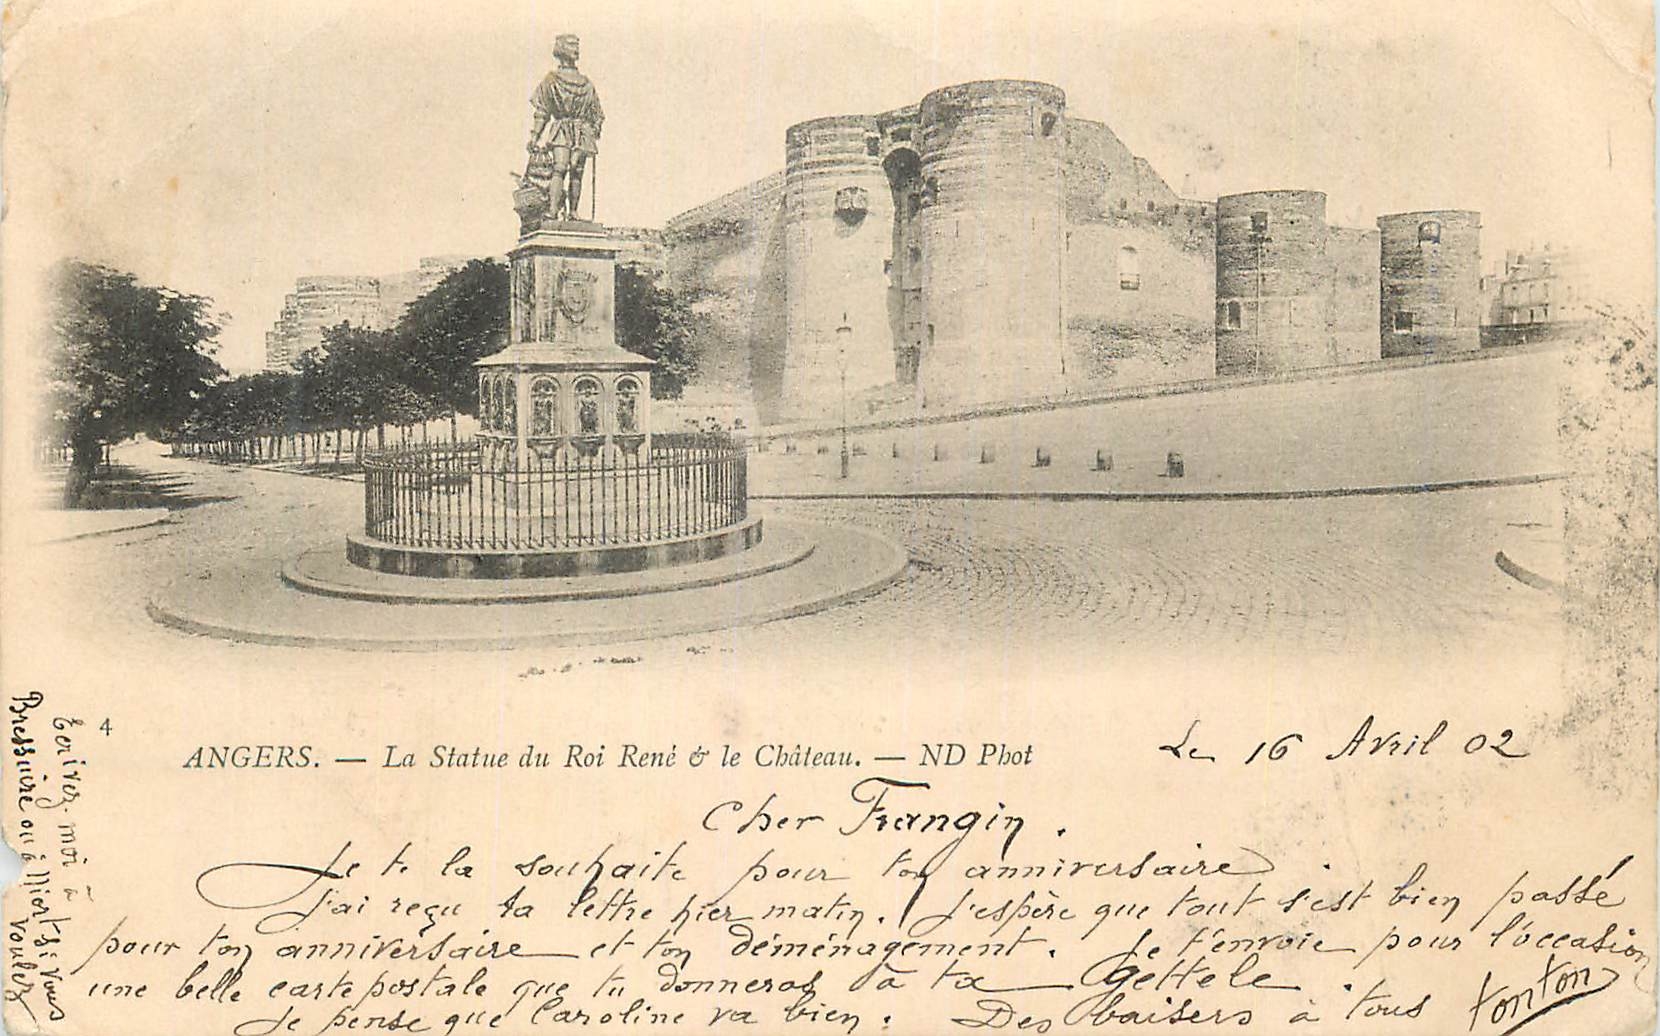 4
ANGERS. — La Statue du Roi René & le Château. — ND Phot
Le 16 Avril 02
Cher Frangin.
Je te la souhaite pour ton anniversaire
J'ai reçu ta lettre hier matin. J'espère que tout s'est bien passé
pour ton anniversaire et ton déménagement. Je t'envoie pour l'occasion
une belle carte postale que tu donneras à ta Gettele.
Je pense que Caroline va bien. Des baisers à tous
tonton
Ecrivez-moi à
Bressuire ou à Niort si vous
voulez